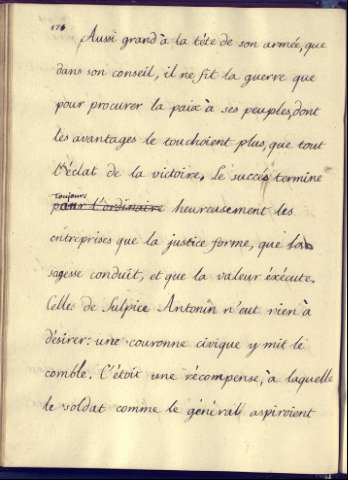 176
Aussi grand à la tête de son armée, que
dans son conseil, il ne fit la guerre que
pour procurer la paix à ses peuples, dont
les avantages le touchoient plus, que tout
l'éclat de la victoire. Le succès termine
Toujours
pour l'ordinaire heureusement les
entreprises que la justice forme, que la
sagesse conduit, et que la valeur éxécute.
Celles de Sulpice Antonin n'eut rien à
désirer: une couronne civique y mit le
comble. C'étoit une récompense, à laquelle
le soldat comme le général aspiroient